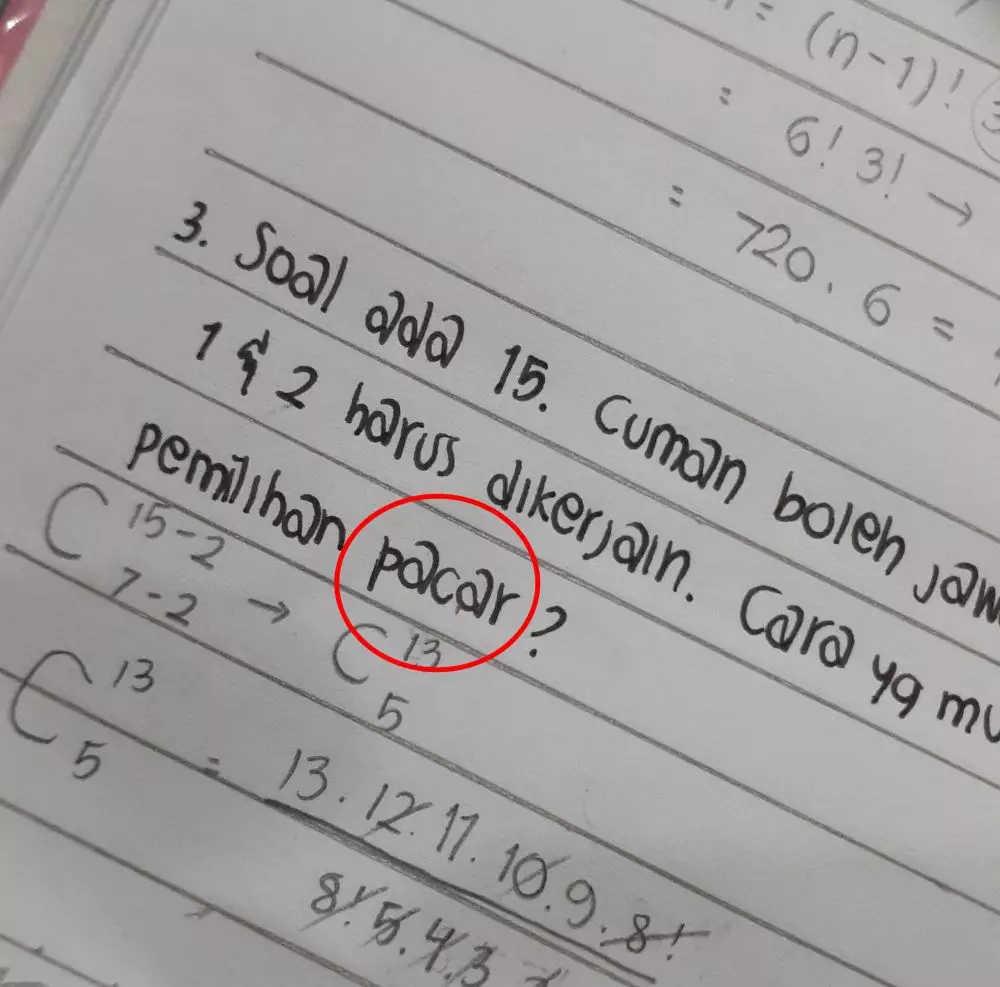 = (n-1)!
= 6! 3! →
= 720 . 6 =
3. Soal ada 15. Cuman boleh
1 & 2 harus dikerjain. Cara yg
pemilihan pacar?
C 15-2 7-2 → C 13 5
C 13 5 = 13 . 12 . 11 . 10 . 9 . 8!
8! . 5 . 4 . 3